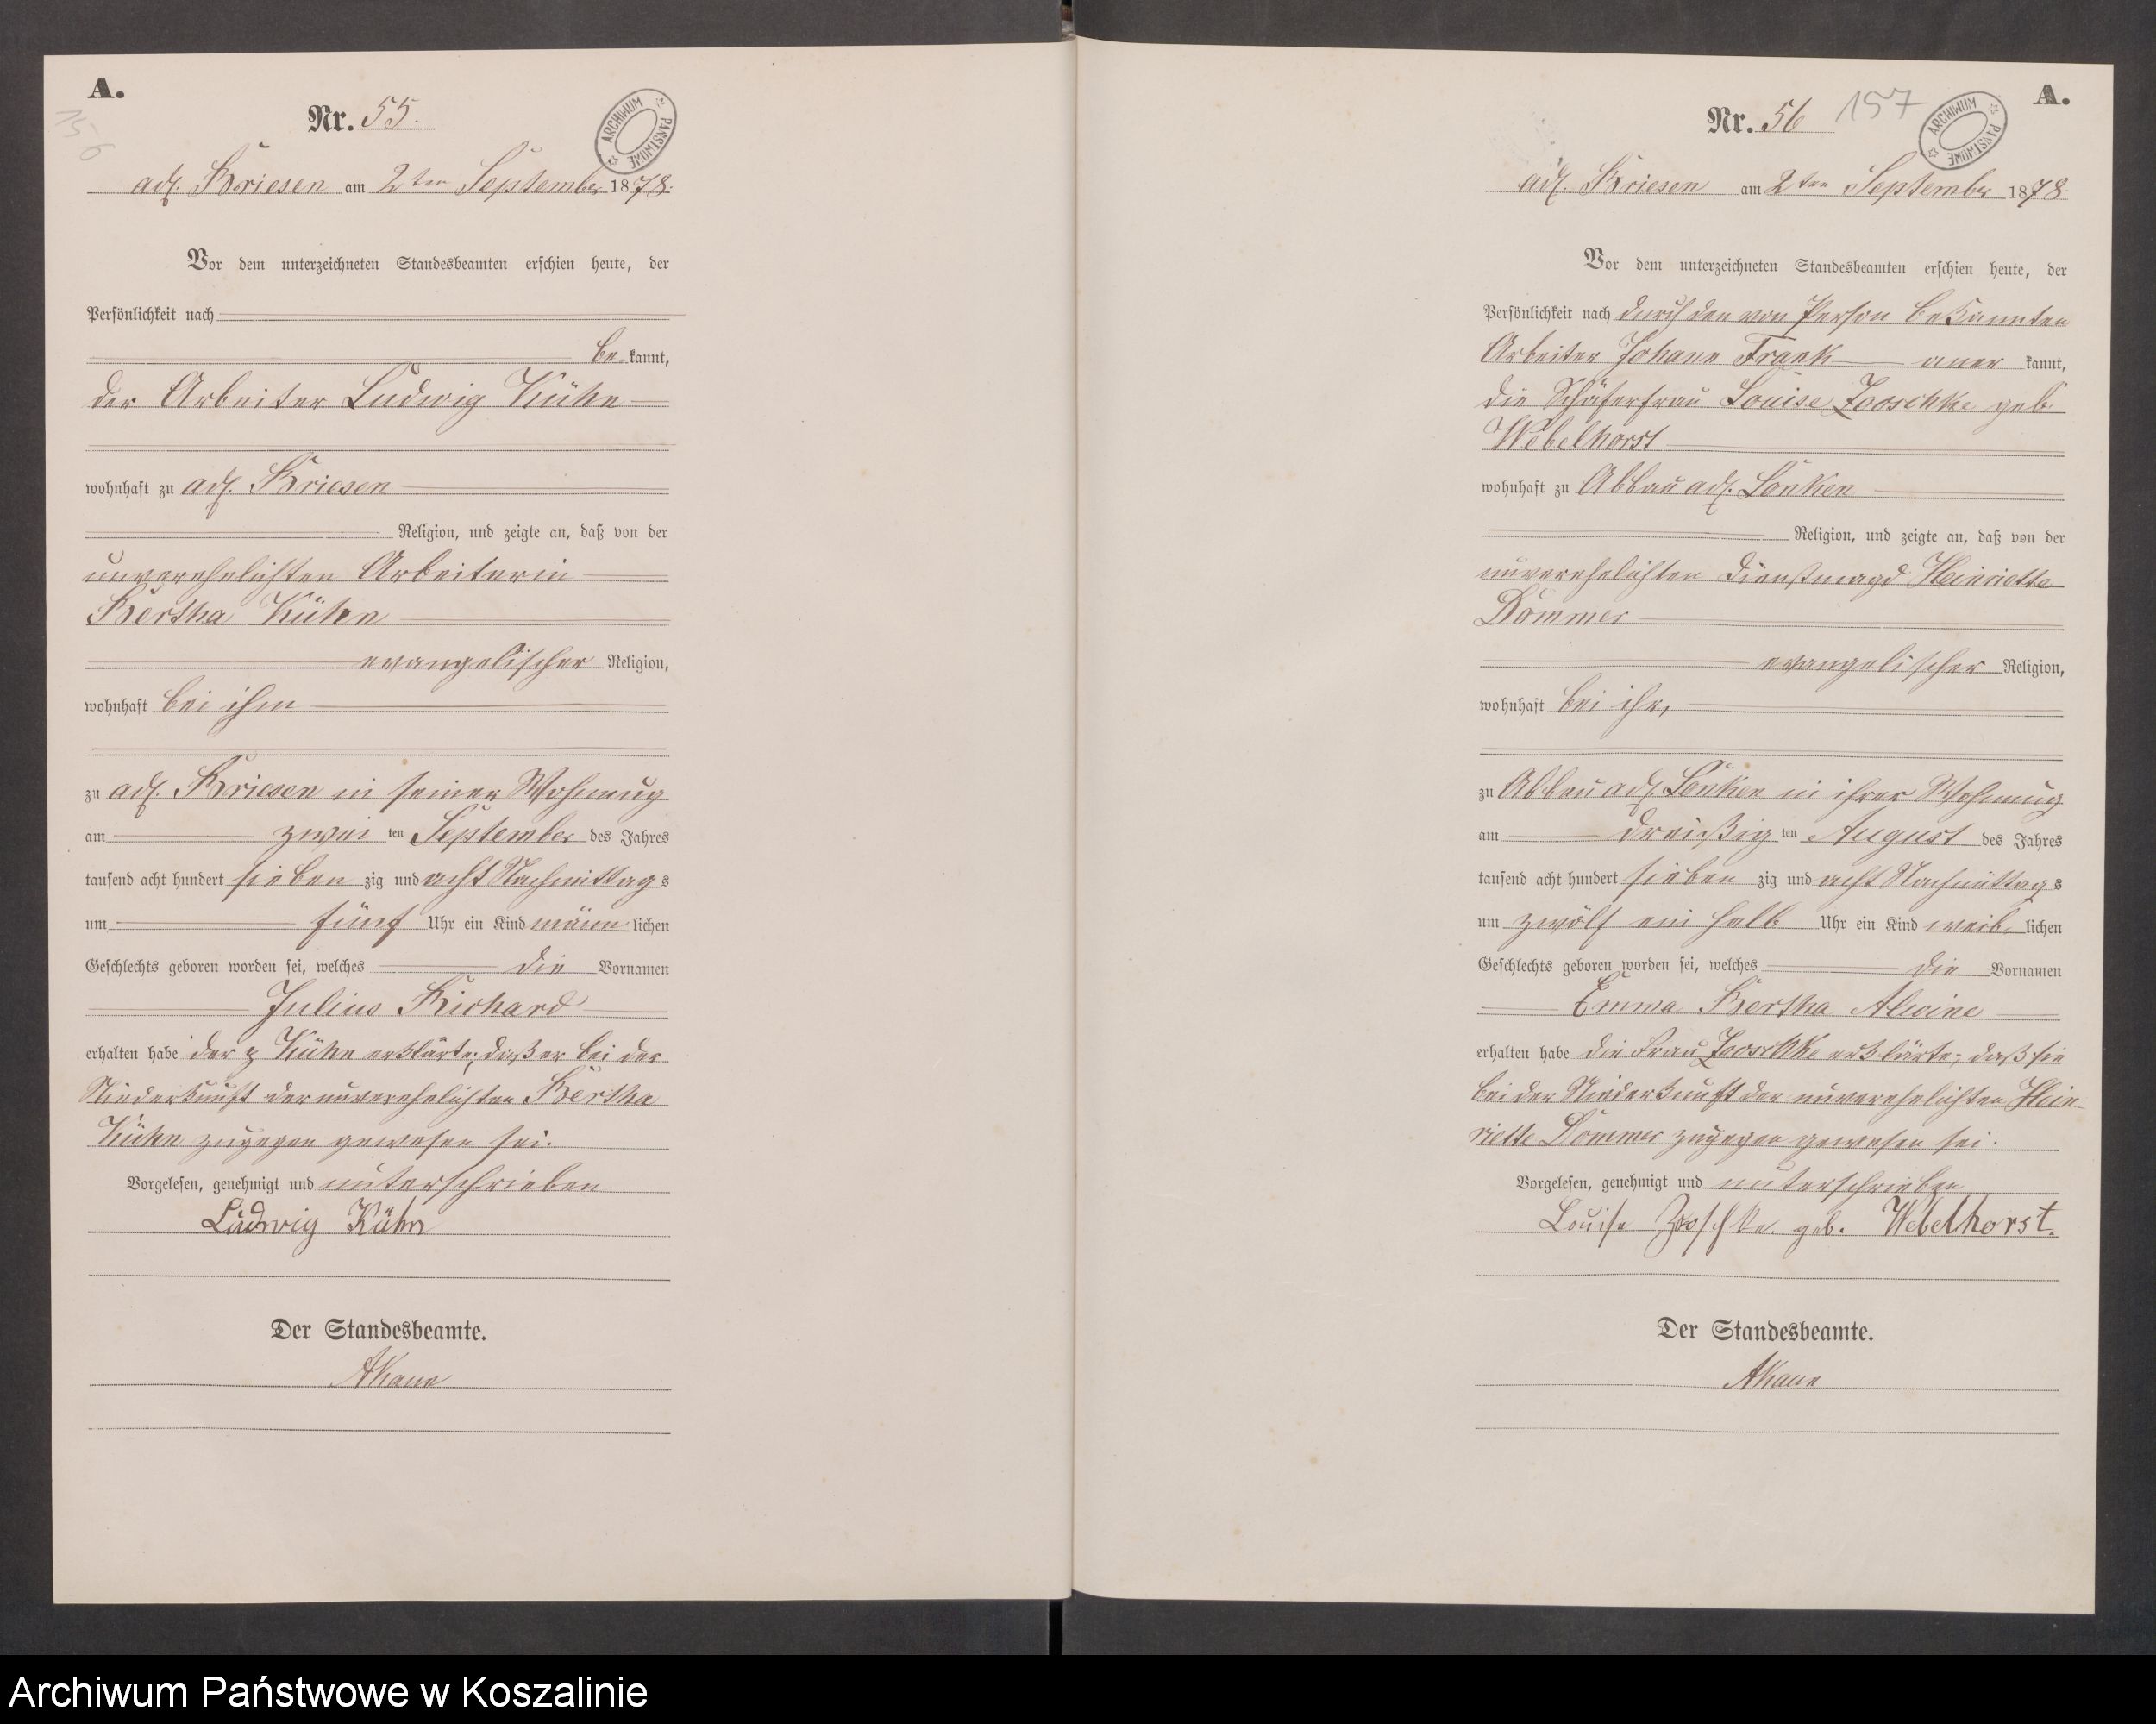 A.
156
Nr. 55.
ARCHIWUM PAŃSTWOWE
adl. Briesen am 2ten September 1878.
Vor dem unterzeichneten Standesbeamten erschien heute, der
Persönlichkeit nach
be kannt,
der Arbeiter Ludwig Kühn
wohnhaft zu adl. Briesen
Religion, und zeigte an, daß von der
unverehelichten Arbeiterin
Bertha Kühn
evangelischer Religion,
wohnhaft bei ihm
zu adl. Briesen in seiner Wohnung
am zwei ten September des Jahres
tausend acht hundert sieben zig und acht Nachmittags
um fünf Uhr ein Kind männ lichen
Geschlechts geboren worden sei, welches die Vornamen
Julius Richard
erhalten habe der p Kühn erklärte, daß er bei der
Niederkunft der unverehelichten Bertha
Kühn zugegen gewesen sei.
Vorgelesen, genehmigt und unterschrieben
Ludwig Kühn
Der Standesbeamte.
A.
Nr. 56
157
ARCHIWUM PAŃSTWOWE
adl. Briesen am 2ten September 1878
Vor dem unterzeichneten Standesbeamten erschien heute, der
Persönlichkeit nach durch den von Person bekannten
Arbeiter Johann Frank aner kannt,
die Schäferfrau Louise Zooschke geb
Webelhorst
wohnhaft zu Abbau adl. Lonken
Religion, und zeigte an, daß von der
unverehelichten Dienstmagd Heinriette
Dommer
evangelischer Religion,
wohnhaft bei ihr,
zu Abbau adl. Lonken in ihrer Wohnung
am dreißig ten August des Jahres
tausend acht hundert sieben zig und acht Nachmittags
um zwölf ein halb Uhr ein Kind weib lichen
Geschlechts geboren worden sei, welches die Vornamen
Emma Bertha Alwine
erhalten habe die Frau Zooschke erklärte, daß sie
bei der Niederkunft der unverehelichten Hein-
riette Dommer zugegen gewesen sei.
Vorgelesen, genehmigt und unterschrieben
Louise Zooschke geb. Webelhorst.
Der Standesbeamte.
Archiwum Państwowe w Koszalinie